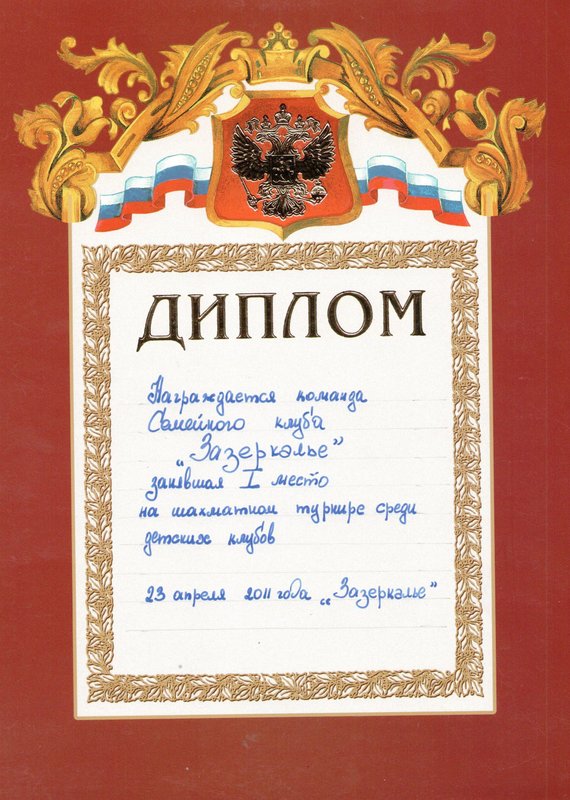 ДИПЛОМ
Награждается команда
Семейного клуба
„Зазеркалье”
занявшая I место
на шахматном турнире среди
детских клубов
23 апреля 2011 года „Зазеркалье”